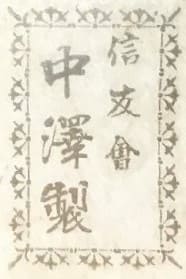 信友會
中澤製